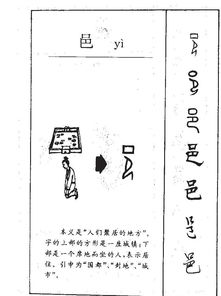 邑 yì
本义是“人们聚居的地方”，
字的上部的方形是一座城镇；下
部是一个席地而坐的人，表示居
住。引申为“国都”、“封地”、“城
市”。
邑
邑